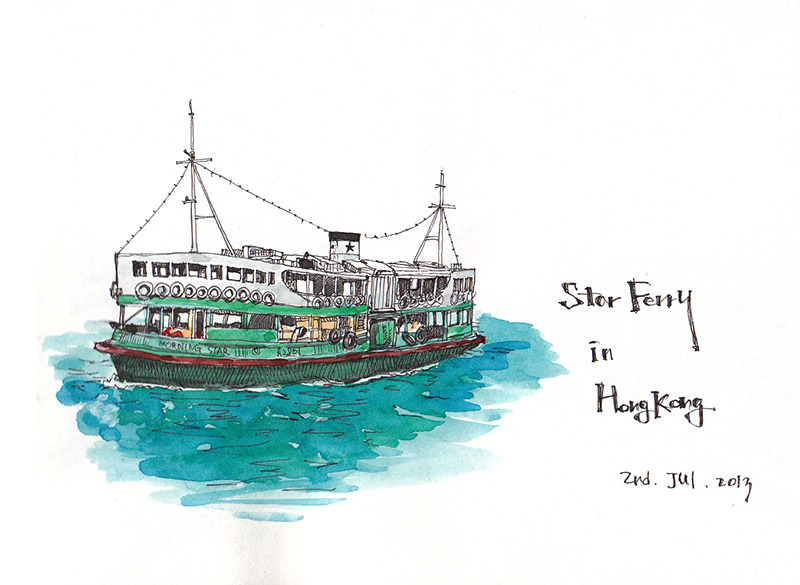 MORNING STAR
Star Ferry
in
Hong Kong
2nd. JUL. 2013